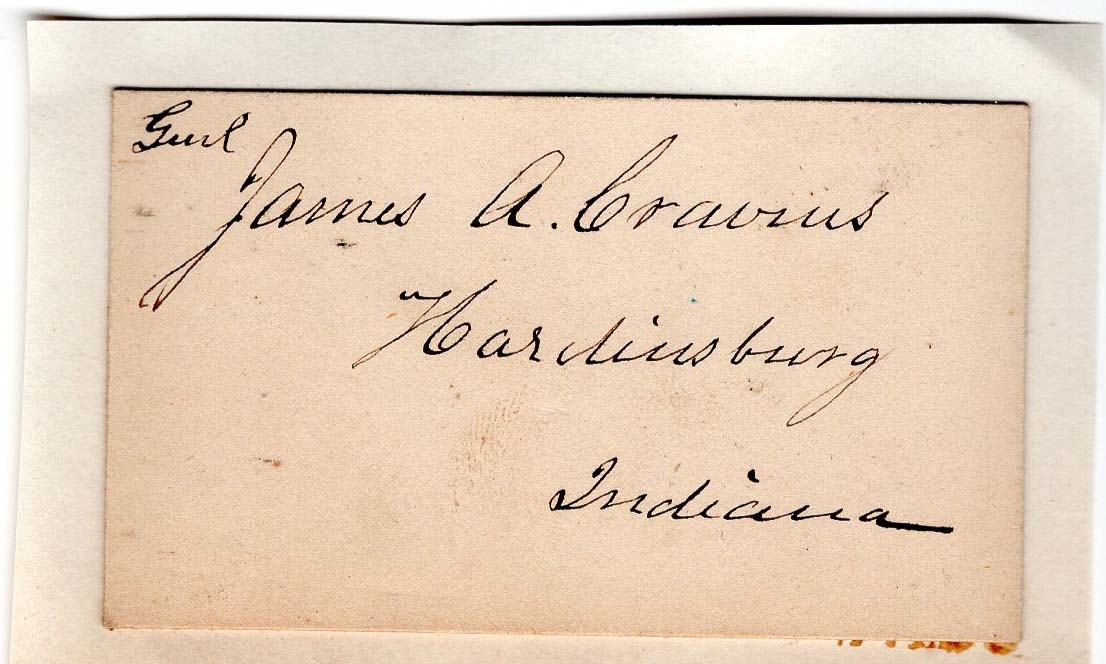 Genl
James A. Cravens
Hardinsburg
Indiana